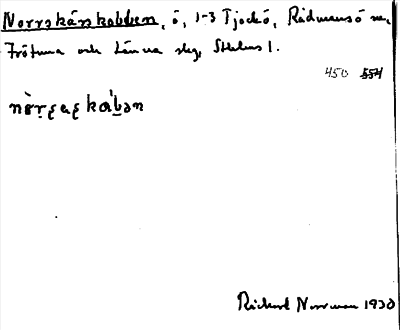 Norrskärskobben, ö, 1-3 Tjockö, Rådmansö sn,
Frötuna och Länna slg, Sthlms l.
450 554
Rickard Norrman 1930